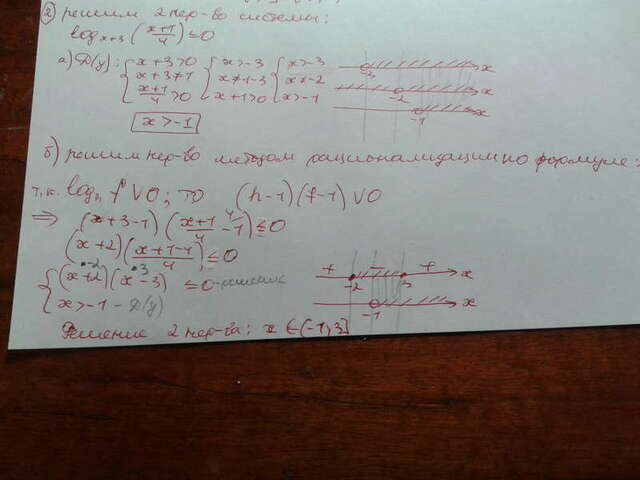 ② решим 2 нер-во системы:
log x+3 (x+1/4) ≤ 0
а) D(y): { x+3>0 { x>-3 { x>-3
x+3≠1 x≠1-3 x≠-2
x+1/4 >0 x+1>0 x>-1
-3 x
-2 x
-1 x
x>-1
б) решим нер-во методом рационализации по формуле:
т.к. log h f V 0; то (h-1)(f-1) V 0
⇒ (x+3-1)(x+1/4 - 1) ≤ 0
(x+2)(x+1-4/4) ≤ 0
-2 3
{ (x+2)(x-3) ≤ 0 - решение
x>-1 - D(y)
+ - +
-2 3 x
-1 x
Решение 2 нер-ва: x ∈ (-1; 3]